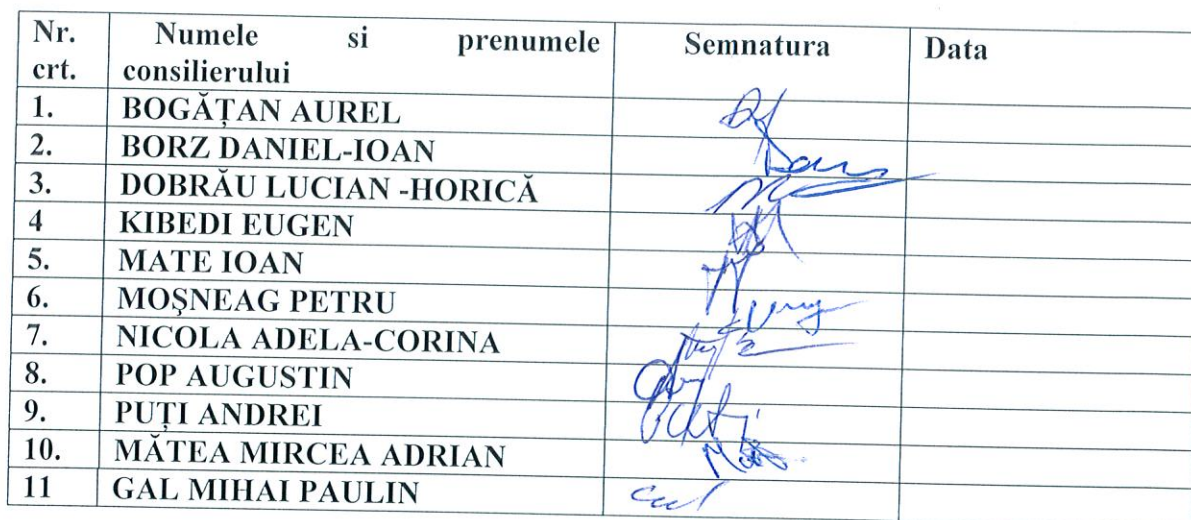 Nr. crt. Numele si prenumele consilierului Semnatura Data
1. BOGĂȚAN AUREL
2. BORZ DANIEL-IOAN
3. DOBRĂU LUCIAN -HORICĂ
4 KIBEDI EUGEN
5. MATE IOAN
6. MOŞNEAG PETRU
7. NICOLA ADELA-CORINA
8. POP AUGUSTIN
9. PUȚI ANDREI
10. MĂTEA MIRCEA ADRIAN
11 GAL MIHAI PAULIN